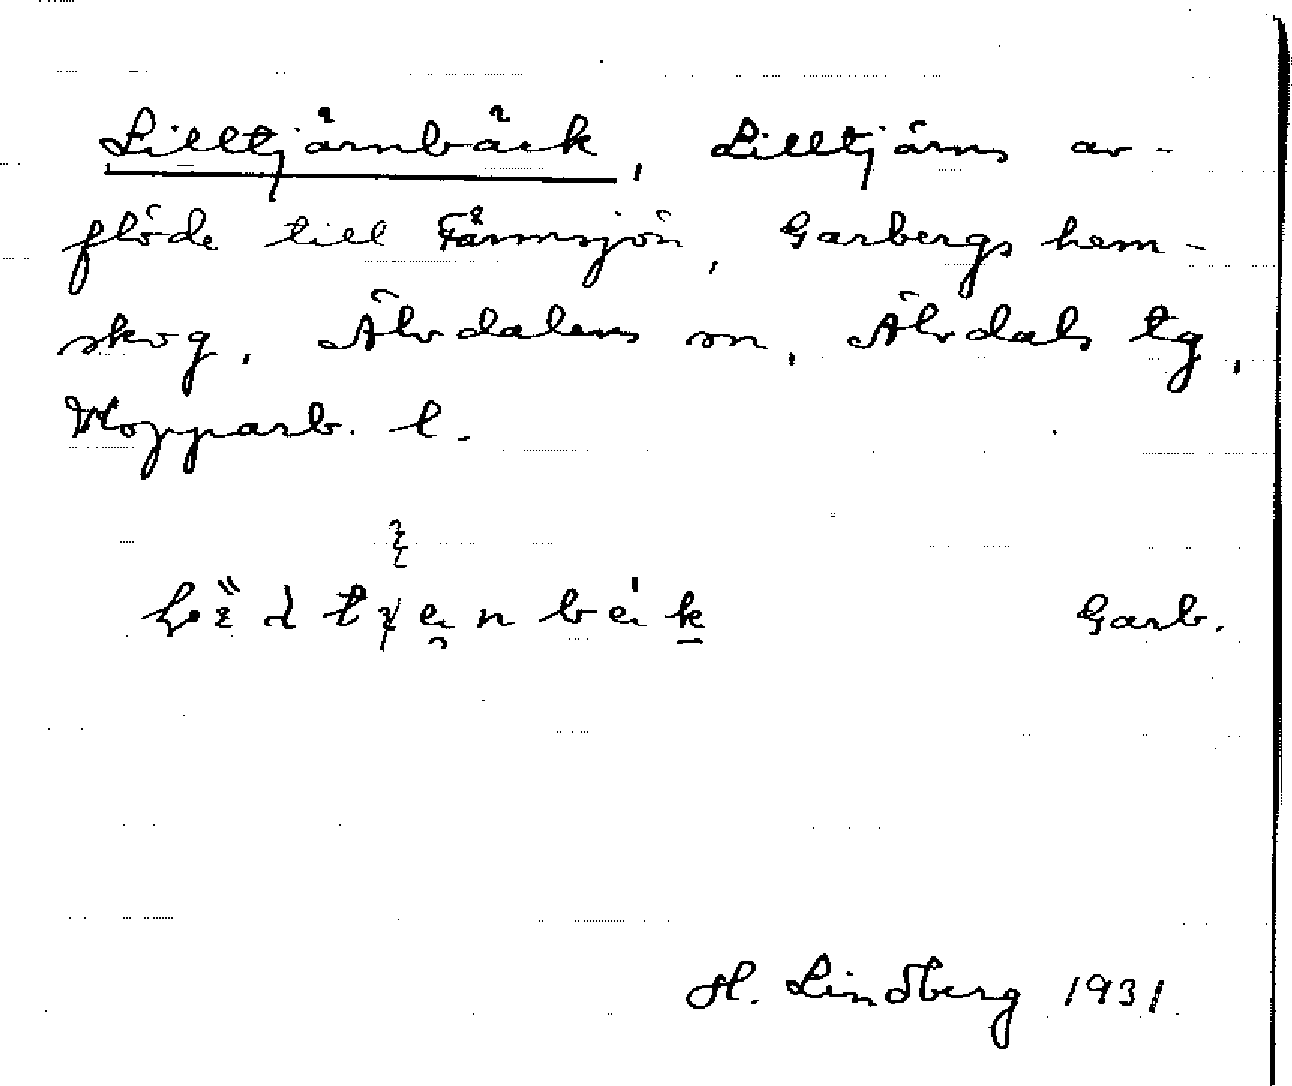 Lilltjärnbäck, Lilltjärns av-
flöde till Färmsjön, Garbergs hem-
skog, Älvdalens sn, Älvdals tg,
Kopparb. l.
Garb.
H. Lindberg 1931